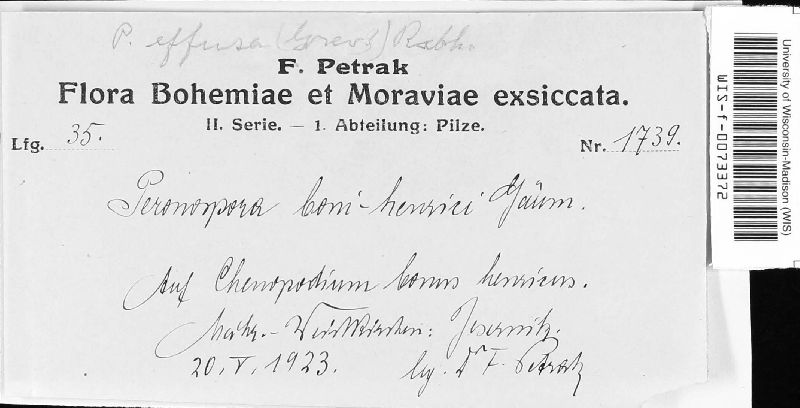 P. effusa (Grev.) Rabh.
F. Petrak
Flora Bohemiae et Moraviae exsiccata.
II. Serie. — 1. Abteilung: Pilze.
Lfg. 35.
Nr. 1739.
Peronospora boni-henrici Gäum.
Auf Chenopodium bonus henricus.
Mähr.-Weisskirchen: Jesernitz.
20. V. 1923. leg. Dr F. Petrak
University of Wisconsin-Madison (WIS)
WIS-f-0073372